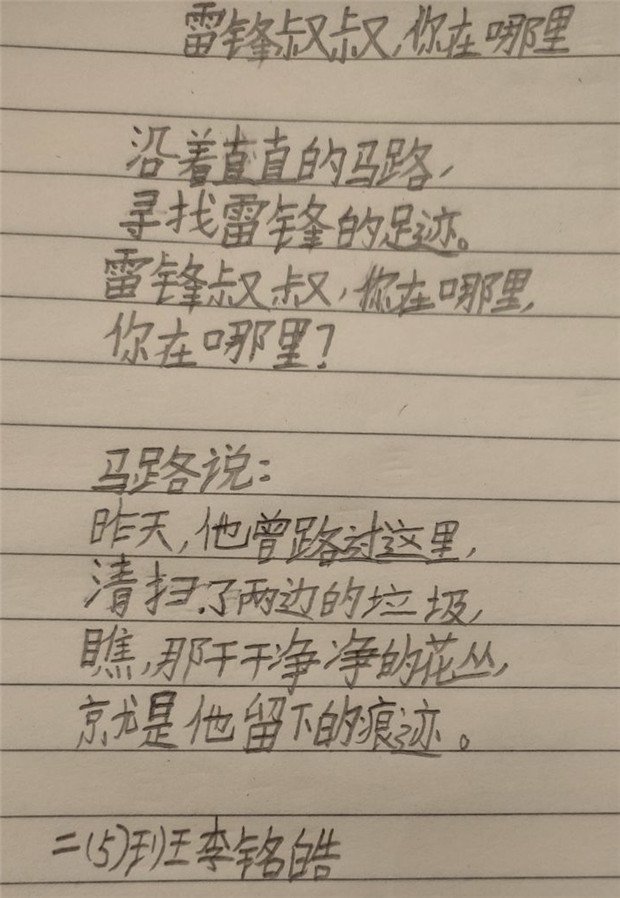 雷锋叔叔,你在哪里
沿着直直的马路,
寻找雷锋的足迹。
雷锋叔叔,你在哪里,
你在哪里?
马路说:
昨天,他曾路过这里,
清扫了两边的垃圾,
瞧,那干干净净的花丛,
就是他留下的痕迹。
二(5)班王李铭皓